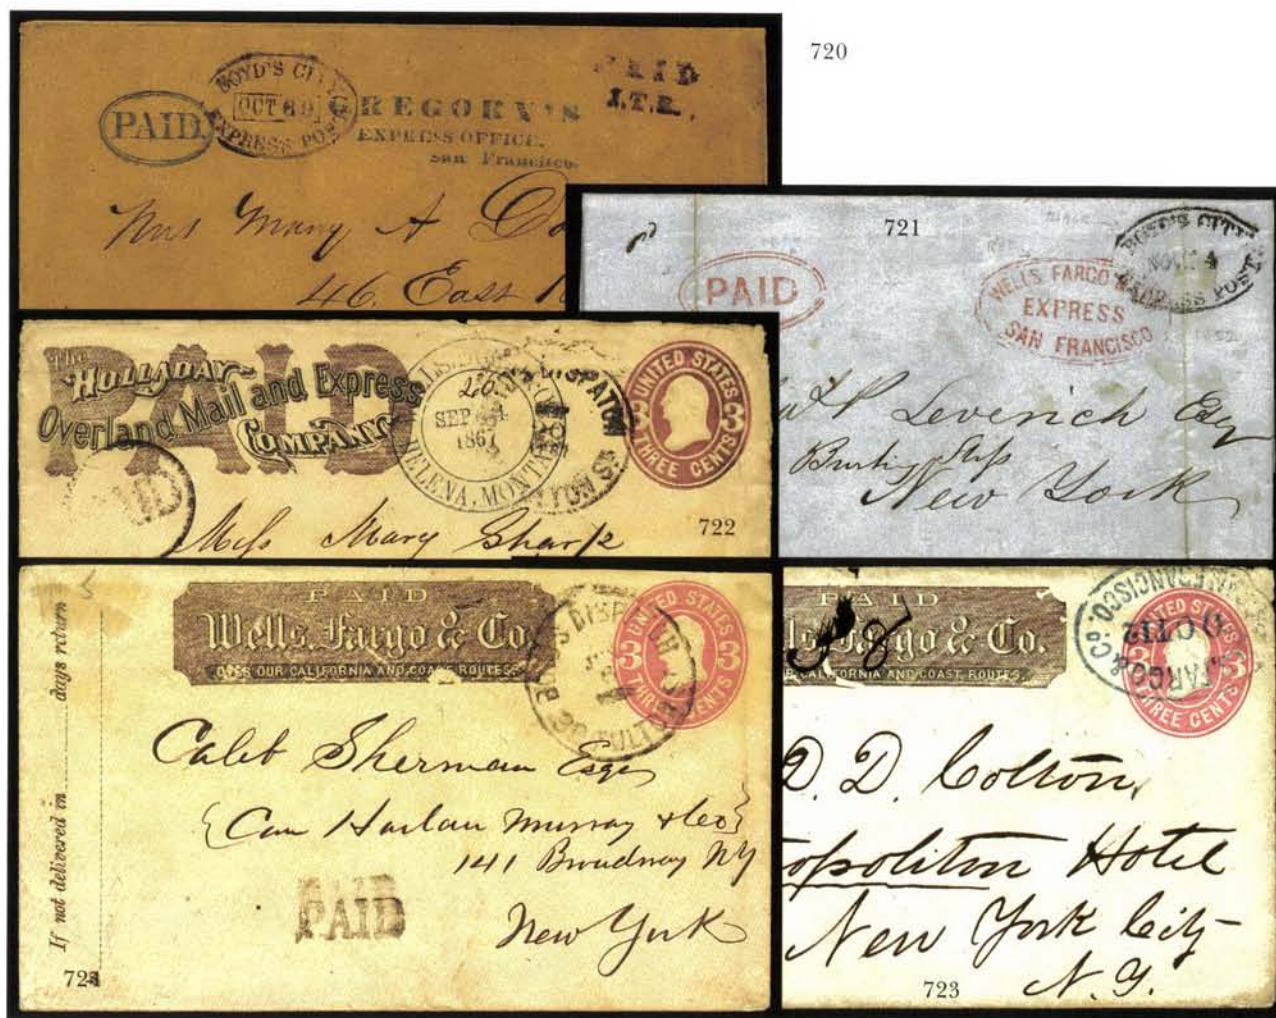 720
BOYD'S CITY
OCT 30
EXPRESS POST
PAID.
GREGORY'S
EXPRESS OFFICE.
San Francisco.
PAID
J.T.R.
Mrs Mary A
46. East
721
PAID
WELLS FARGO &
EXPRESS
SAN FRANCISCO
BOYD'S CITY
NOV 4
EXPRESS POST
Leverich Esq
Burling Slip
New York
PAID
The
HOLLADAY
Overland Mail and Express
COMPANY
SEP
1867
HELENA, MONTA
DISPATCH
UNITED STATES
3 3
THREE CENTS
PAID
Miss Mary Sharp
722
If not delivered in days return
PAID
Wells, Fargo & Co.
OVER OUR CALIFORNIA AND COAST ROUTES.
BOYD'S DISPATCH
UNITED STATES
3 3
THREE CENTS
Caleb Sherman Esqr
{Care Harlan Murray & Co}
141 Broadway NY
PAID
New York
724
PAID
lls, Fargo & Co.
CALIFORNIA AND COAST ROUTES.
FARGO & CO.
SAN FRANCISCO
OCT 12
UNITED STATES
3
THREE CENTS
D. D. Colton,
opoliton Hotel
New York City
N. Y.
723